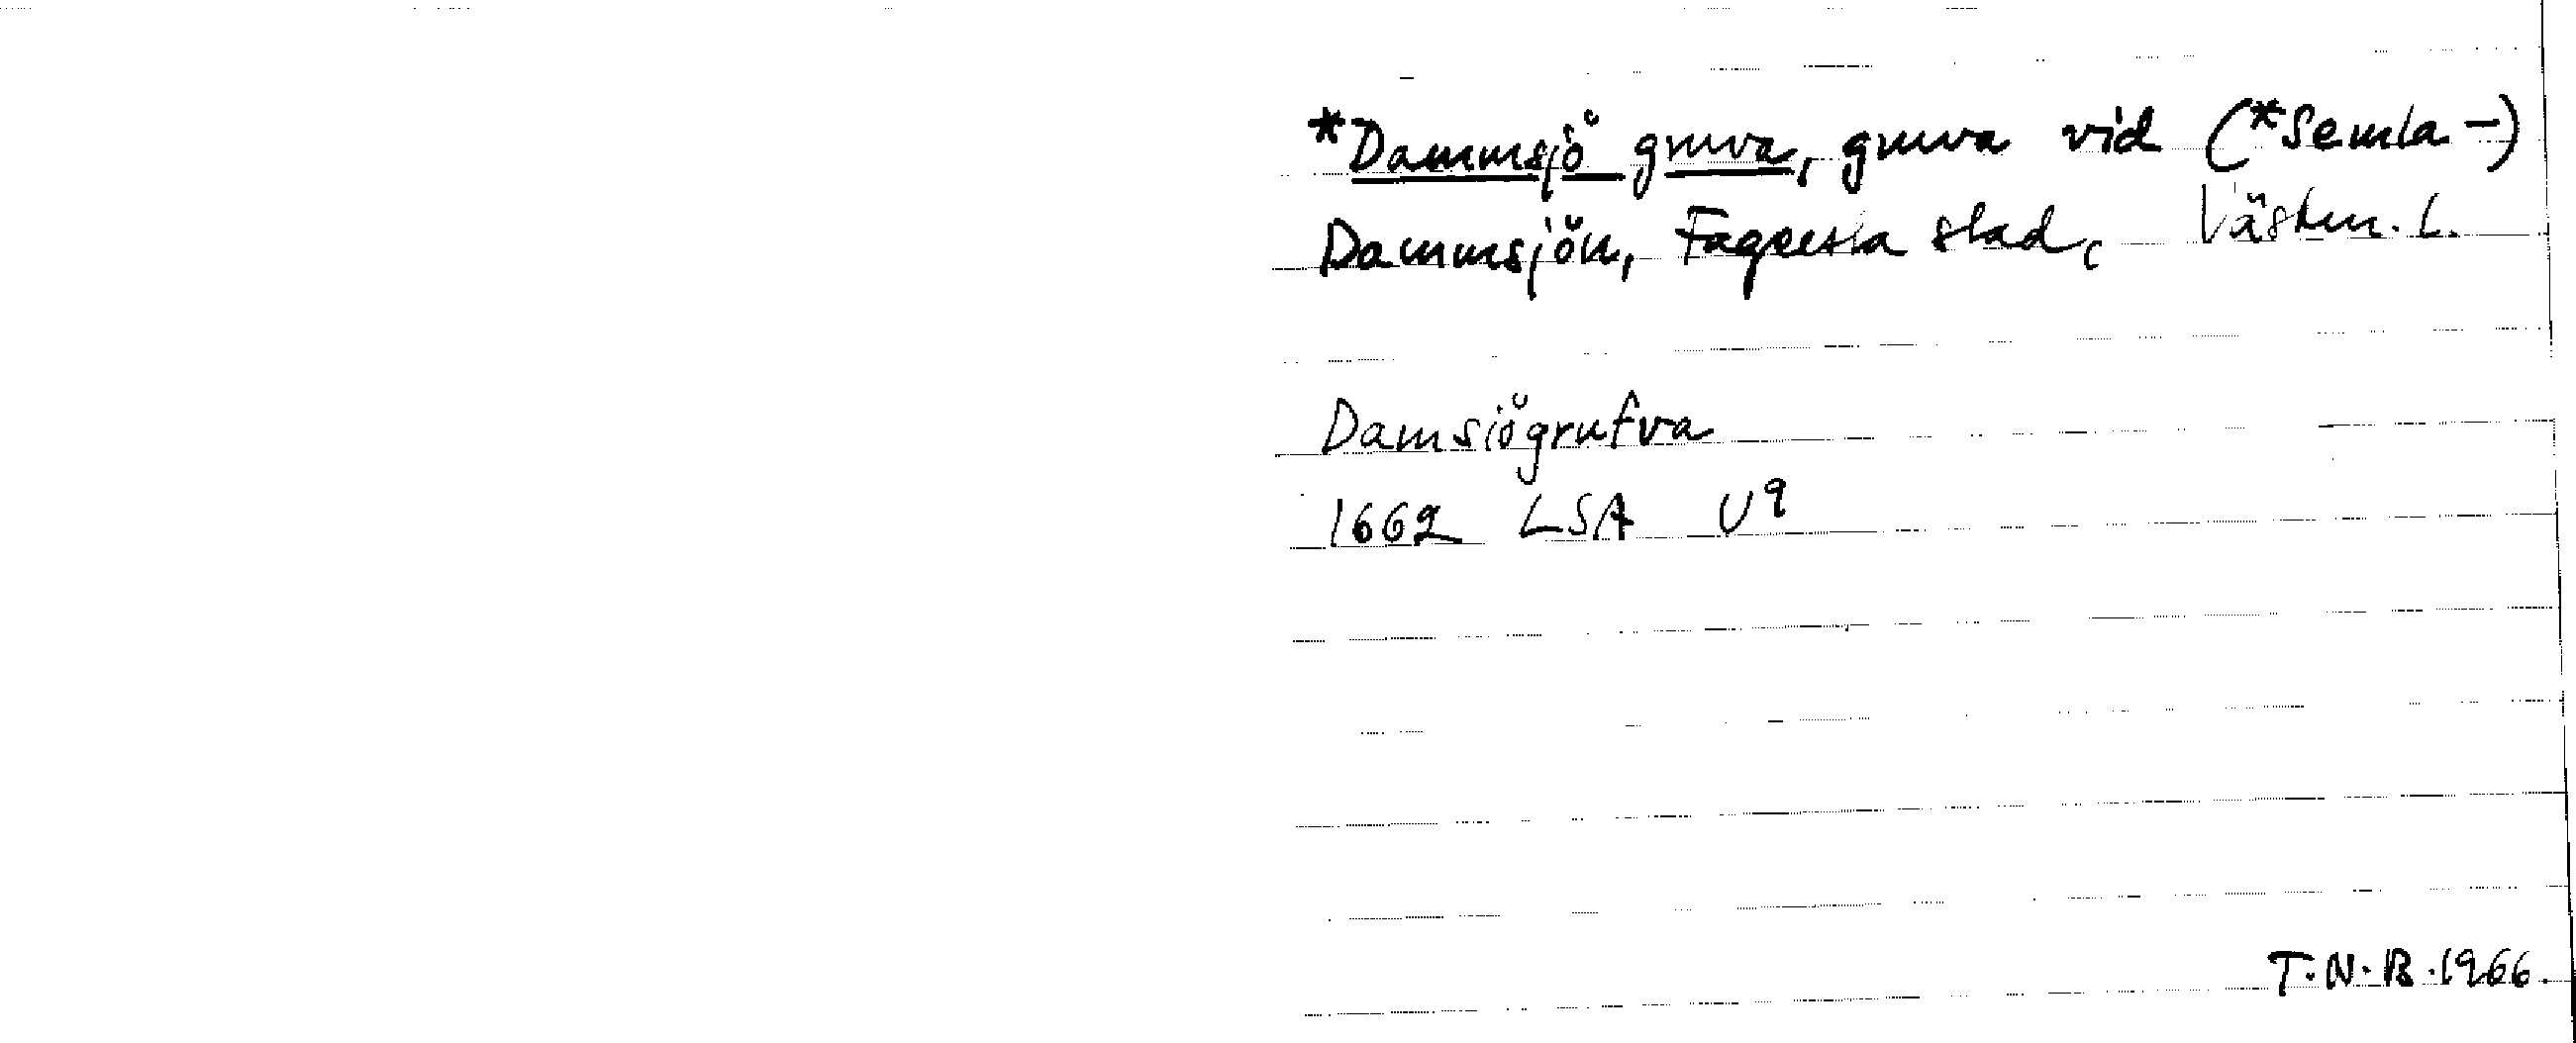 *Dammsjö gruva, gruva vid (*Semla-)
Dammsjön, Fagersta stad, Västm. L.
Damsiögrufva
1662 LSA U9
T.N.B. 1966.